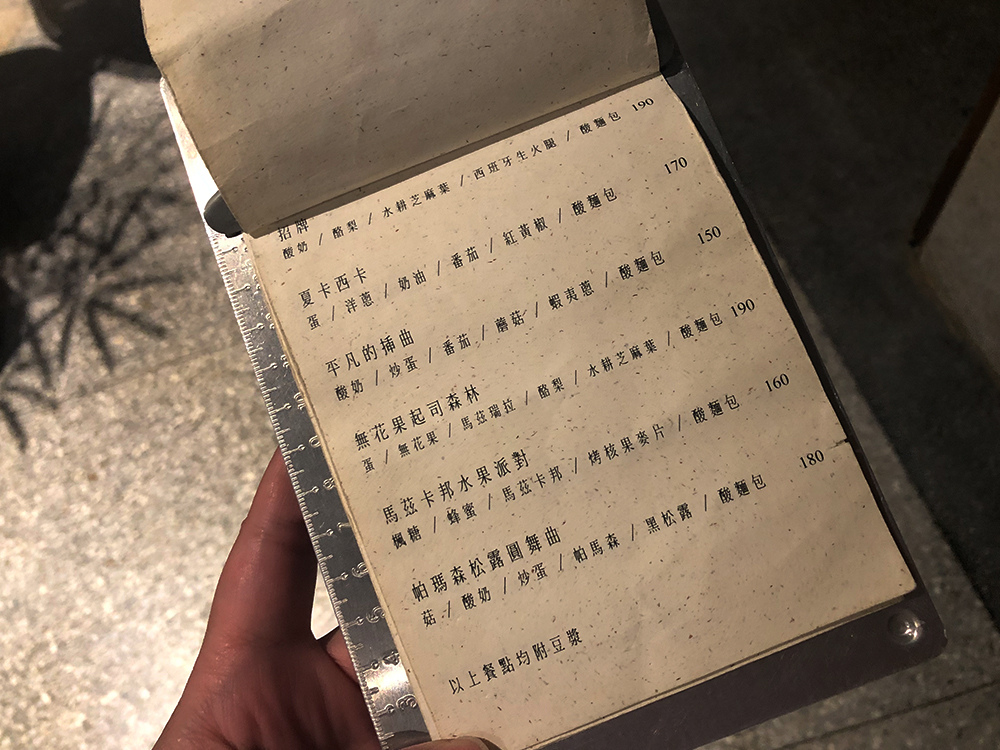 招牌 190
酸奶 / 酪梨 / 水耕芝麻葉 / 西班牙生火腿 / 酸麵包
夏卡西卡 170
蛋 / 洋蔥 / 奶油 / 番茄 / 紅黃椒 / 酸麵包
平凡的插曲 150
酸奶 / 炒蛋 / 番茄 / 蘑菇 / 蝦夷蔥 / 酸麵包
無花果起司森林 190
蛋 / 無花果 / 馬茲瑞拉 / 酪梨 / 水耕芝麻葉 / 酸麵包
馬茲卡邦水果派對 160
楓糖 / 蜂蜜 / 馬茲卡邦 / 烤核果麥片 / 酸麵包
帕瑪森松露圓舞曲 180
菇 / 酸奶 / 炒蛋 / 帕馬森 / 黑松露 / 酸麵包
以上餐點均附豆漿